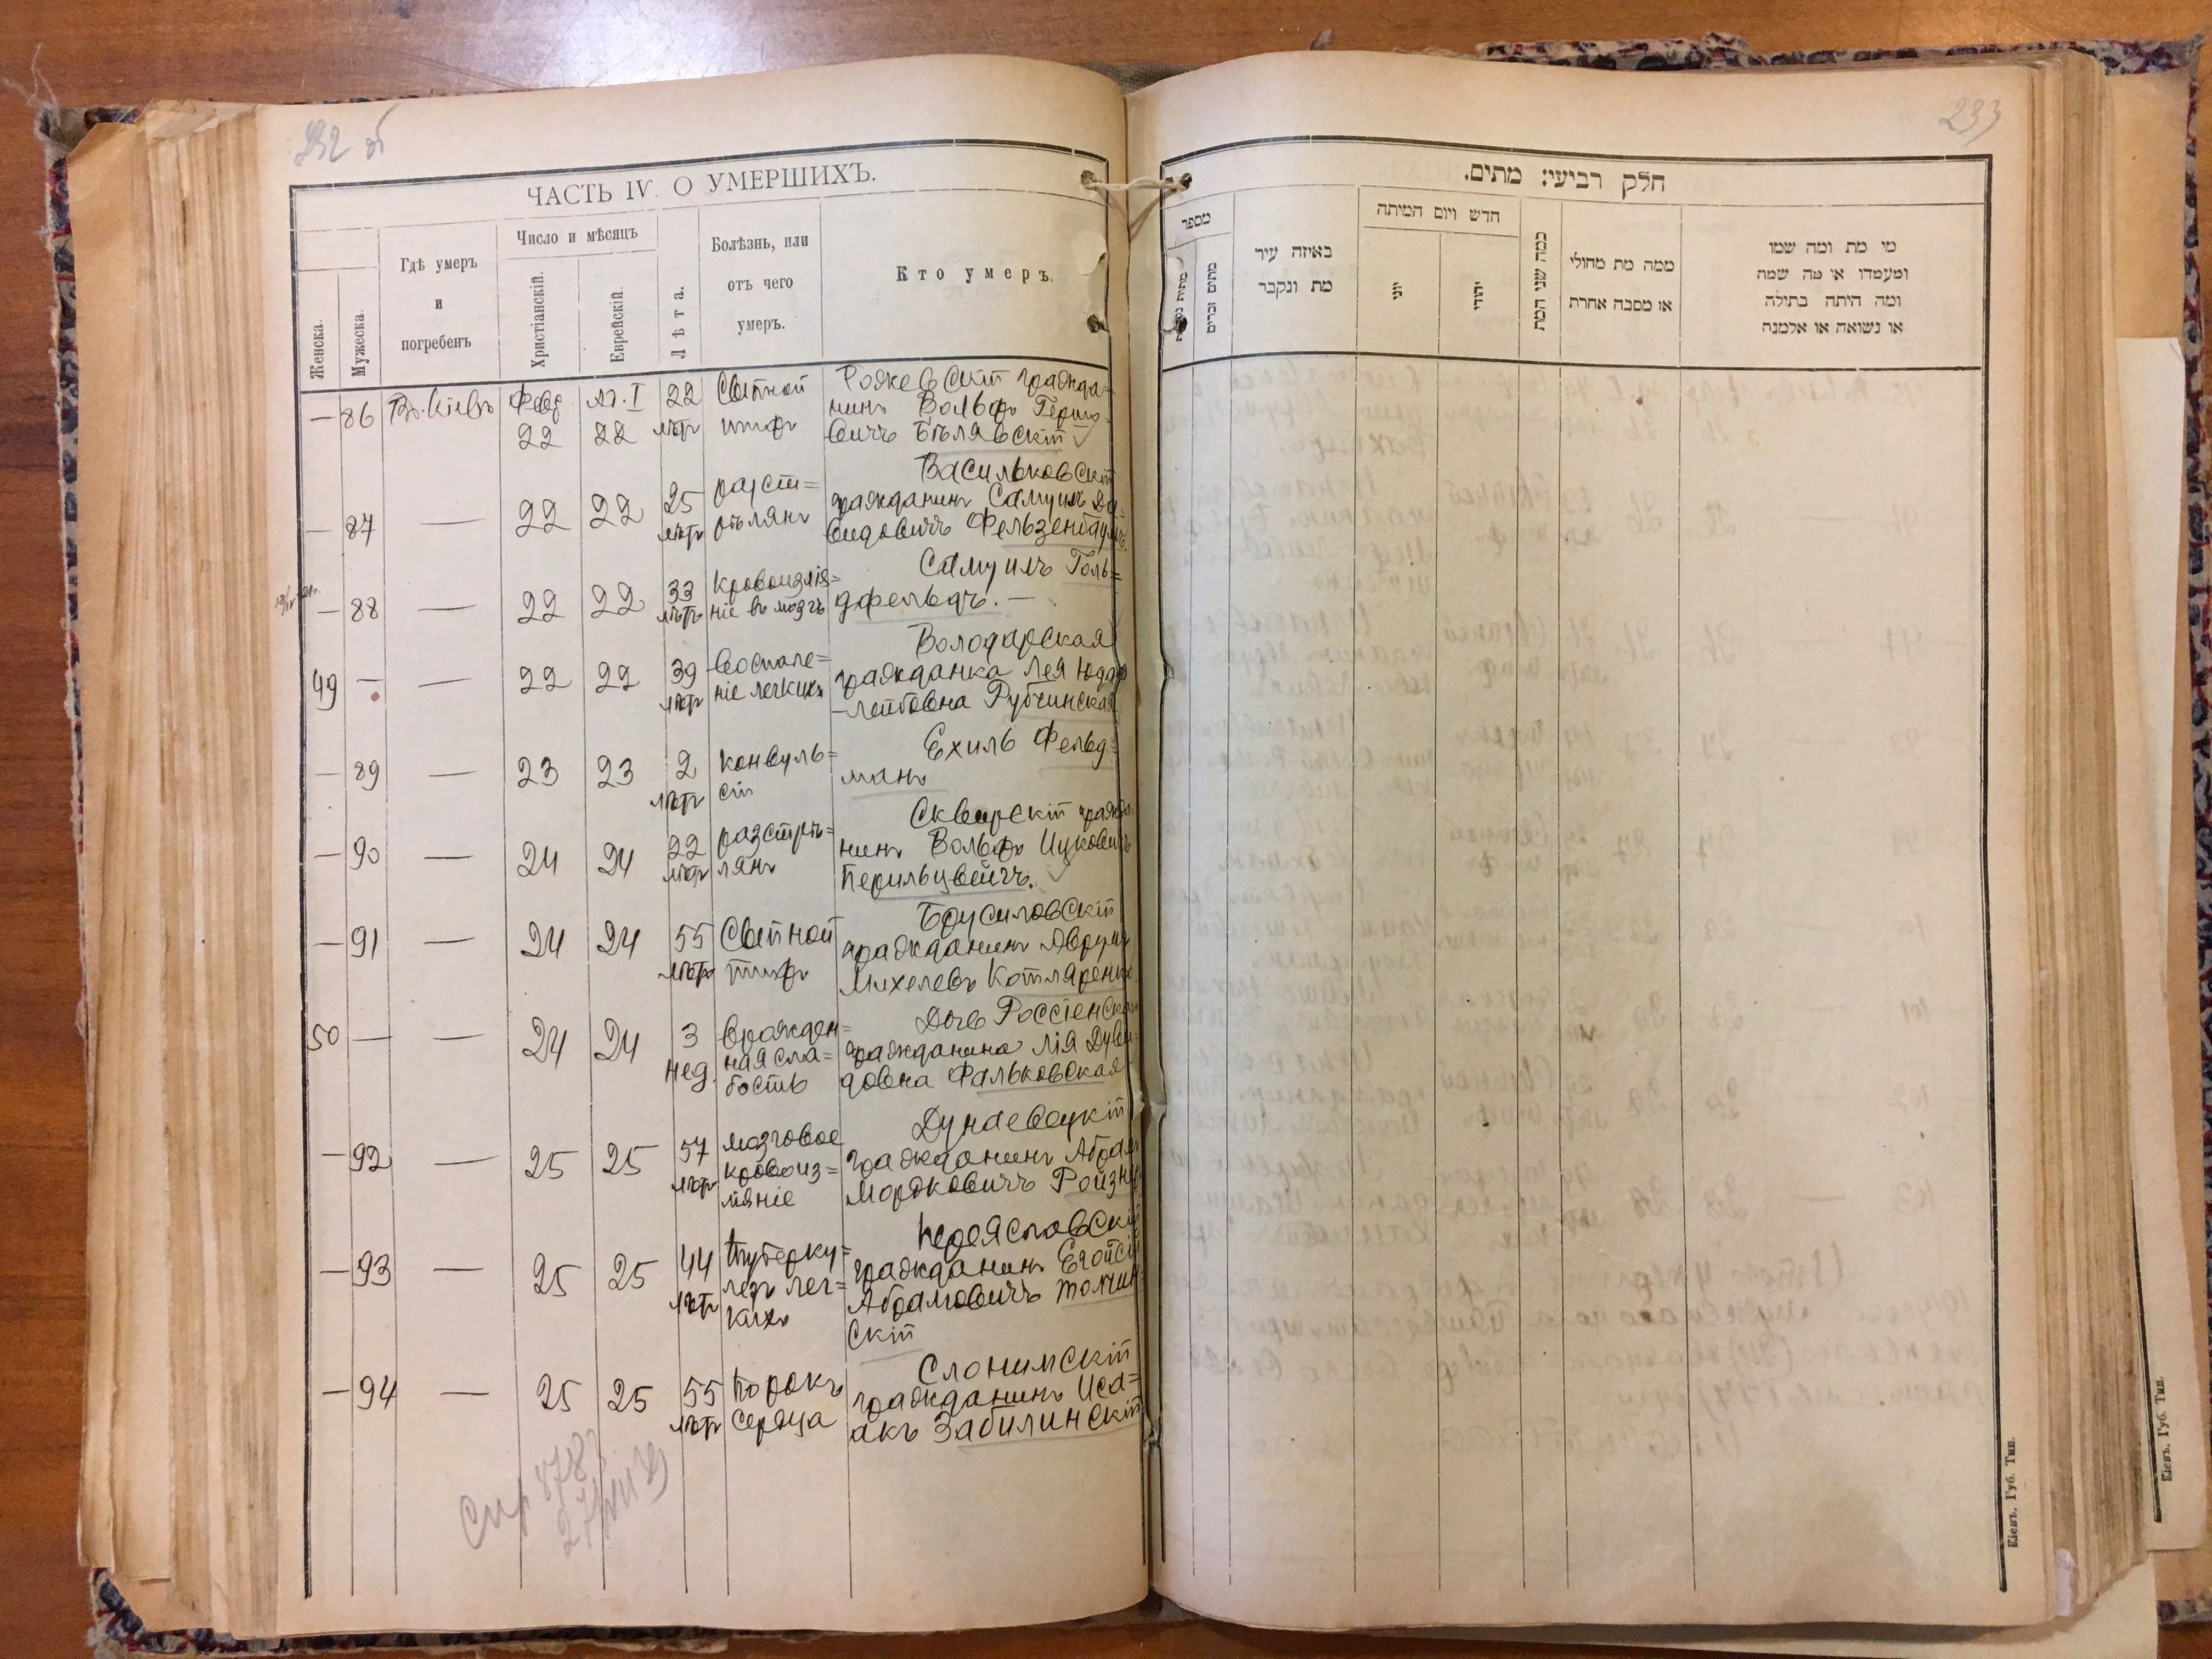 232 об
233
ЧАСТЬ IV. О УМЕРШИХЪ.
Женска.
Мужеска.
Гдѣ умеръ
и
погребенъ
Число и мѣсяцъ
Христіанскій.
Еврейскій.
Лѣта.
Болѣзнь, или
отъ чего
умеръ.
Кто умеръ.
— 86 Въ Кіевѣ Февр. 22 22 22 лѣтъ
Сыпной
тифъ
гражда-
нинъ Вольфъ
Бѣлявскій
— 87 — 22 22 25 лѣтъ
Васильковскій
гражданинъ Самуилъ Да-
видовичъ Фельзенбаумъ.
— 88 — 22 22 33 лѣтъ
Кровоизлія=
ніе въ мозгъ
Самуилъ Голь=
дфельдъ. —
49 — — 22 22 39 лѣтъ
Воспале=
ніе легкихъ
Володарская
гражданка Лея Юдко
-Лейбовна Рубчинская
— 89 — 23 23 2 лѣтъ
Конвуль=
сіи
Ехиль Фельд=
манъ
— 90 — 24 24 22 лѣтъ
разстрѣ=
лянъ
Сквирскій гражда
нинъ Вольфъ Ицковичъ
Перильцвейгъ.
— 91 — 24 24 55 лѣтъ
Сыпной
тифъ
Брусиловскій
гражданинъ Аврумъ
Михелевъ Котляренко
50 — — 24 24 3 нед.
врожден=
ная сла=
бость
Дочь Россіенск
гражданина Лія Дуви=
довна Фальковская
— 92 — 25 25 57 лѣтъ
мозговое
кровоиз=
ліяніе
Дунаевецкій
гражданинъ Абрам
Мордковичъ Ройзн
— 93 — 25 25 44 лѣтъ
туберку=
лезъ лег=
кихъ
Переяславскій
гражданинъ
Абрамовичъ Толчин
скій
— 94 — 25 25 55 лѣтъ
Порокъ
сердца
Слонимскій
гражданинъ Иса=
акъ Забилинскій
חלק רביעי: מתים.
מספר
מתים זכרים
באיזה עיר
מת ונקבר
חדש ויום המיתה
יוני
יהודי
כמה שני המת
ממה מת מחולי
או מסבה אחרת
מי מת ומה שמו
ומעמדו או מה שמה
ומה היתה בתולה
או נשואה או אלמנה
Кіевъ. Губ. Тип.
Кіевъ. Губ. Тип.